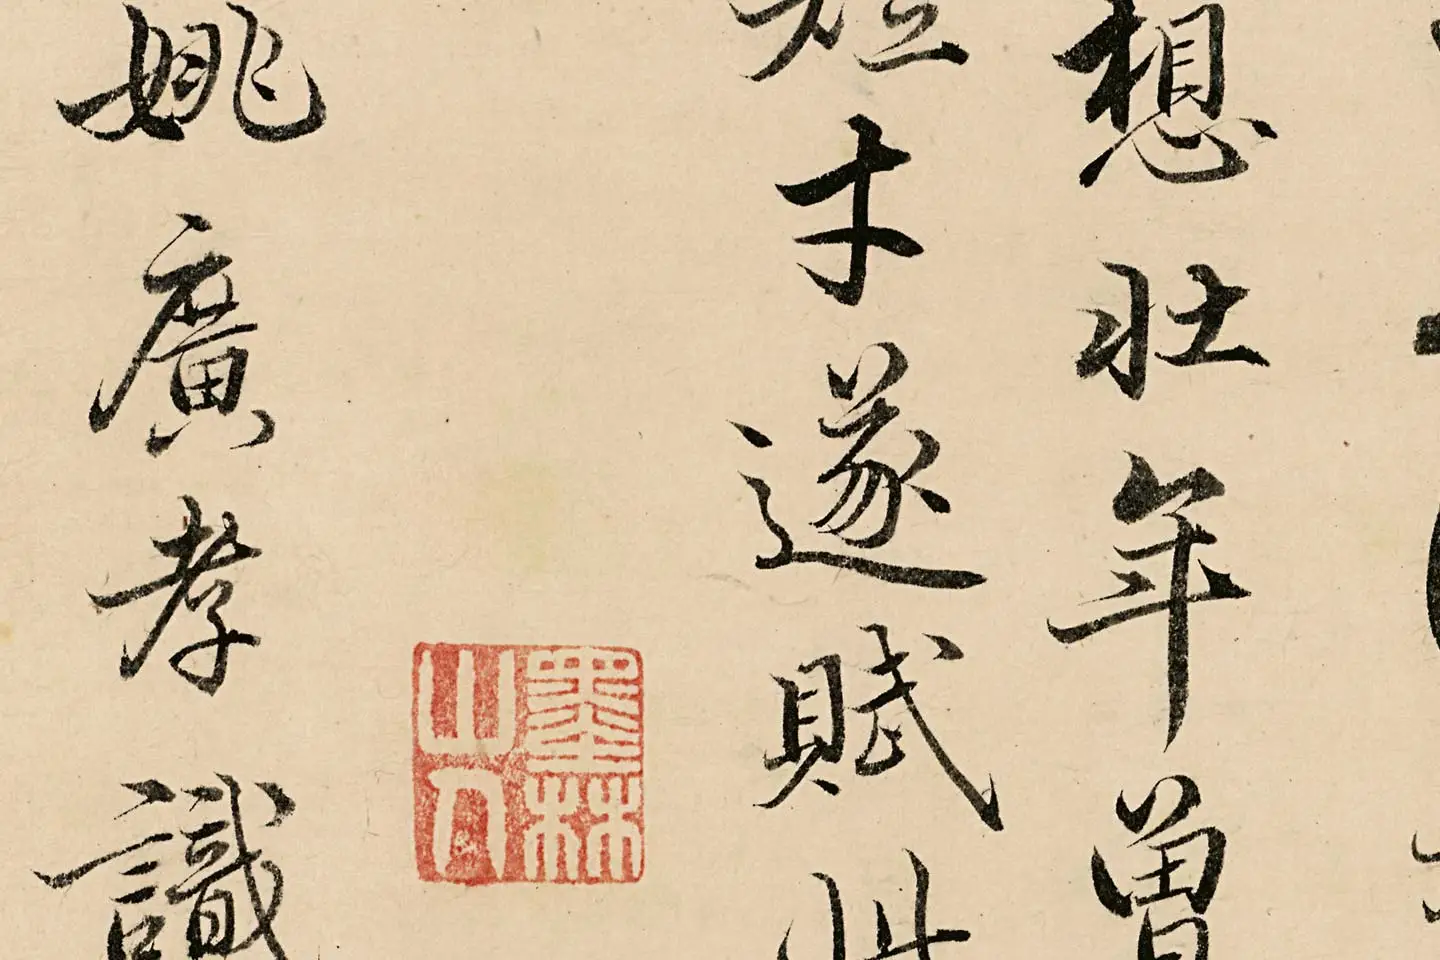 想壯年曾
短才遂賦此
墨林
山人
姚廣孝識